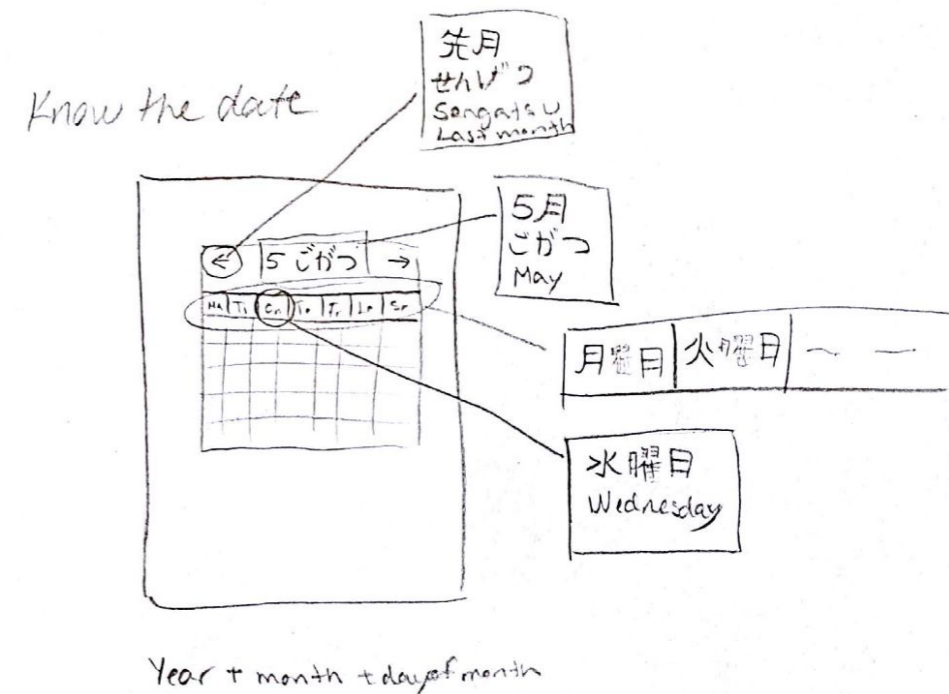 Know the date
先月
せんげつ
Sengatsu
Last month
5月
ごがつ
May
← 5 ごがつ →
Ma Ti On To
月曜日 火曜日 ~ —
水曜日
Wednesday
Year + month + day of month